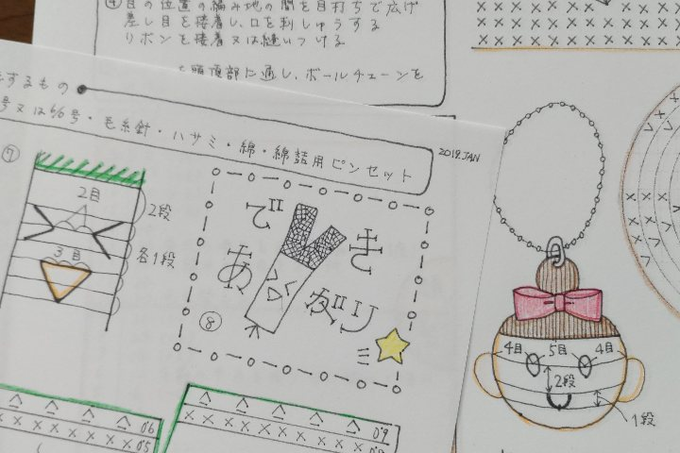 ④目の位置の編み地の間を目打ちで広げ
差し目を接着し、口を刺しゅうする
リボンを接着又は縫いつける
頭頂部に通し、ボールチェーンを
するもの
号又は6/0号・毛糸針・ハサミ・綿・綿詰用ピンセット
2019.JAN
⑦
2目
2段
3目
各1段
⑧
できあがり
4目
5目
4目
2段
1段